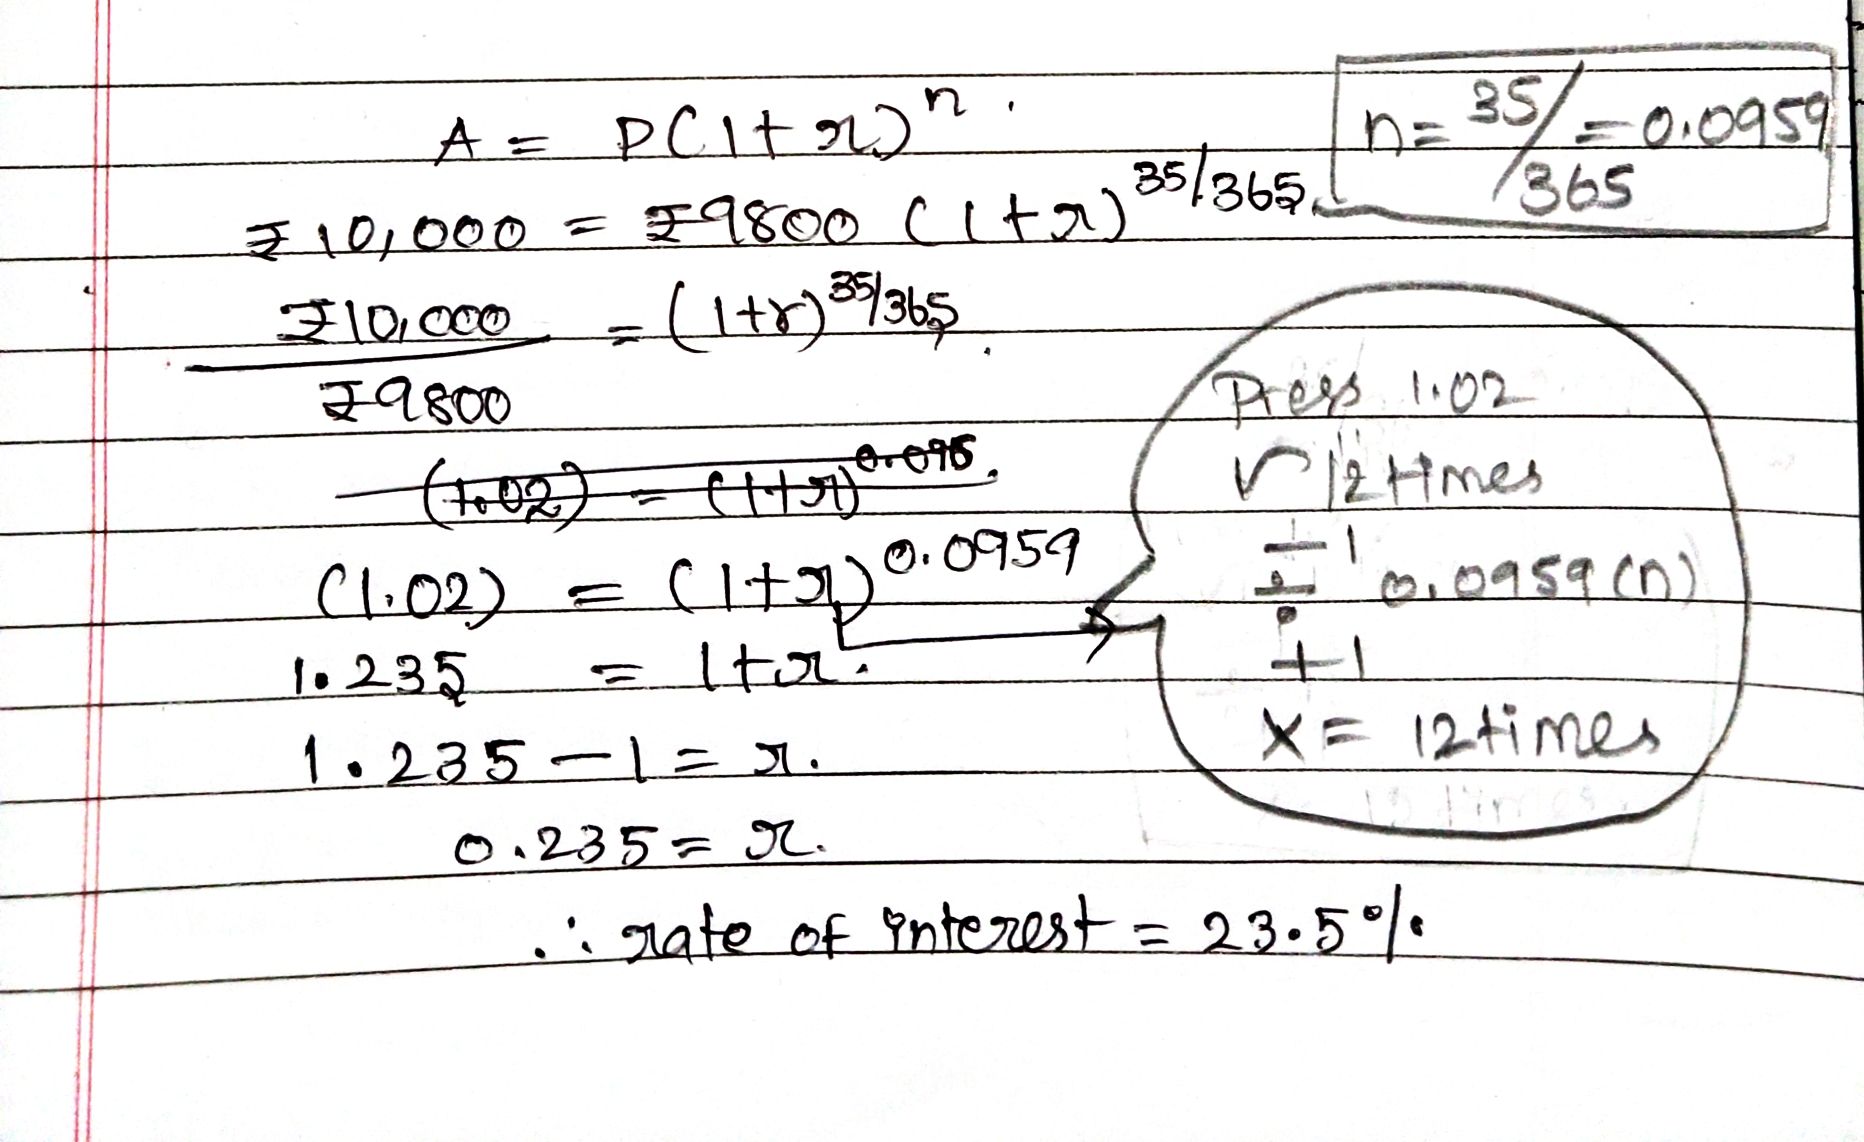 A = P(1+r)ⁿ.
n = 35/365 = 0.0959
₹10,000 = ₹9800 (1+r)^35/365
₹10,000 = (1+r)^35/365.
₹9800
(1.02) = (1+r)^0.0959
1.235 = 1+r.
1.235 – 1 = r.
0.235 = r.
∴ rate of interest = 23.5%
Press 1.02
√ 12 times
– 1
÷ 0.0959 (n)
+1
x = 12 times